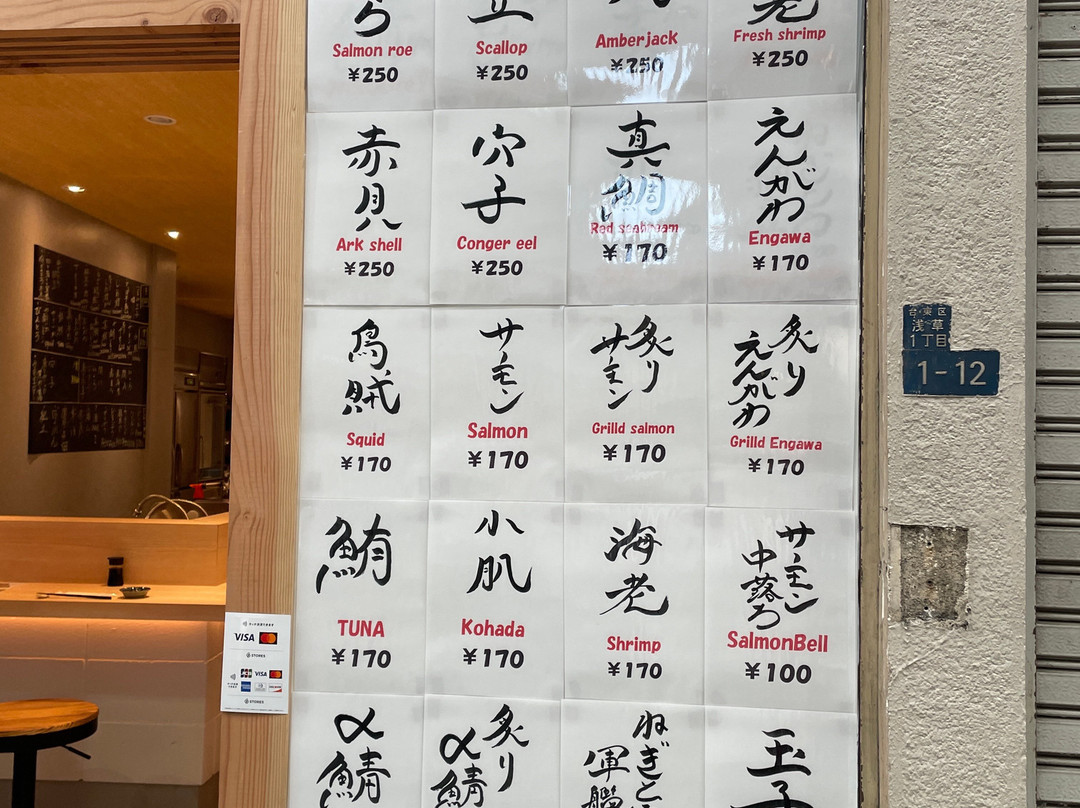 ら
立
老
Salmon roe
Scallop
Amberjack
Fresh shrimp
¥250
¥250
¥250
¥250
赤貝
穴子
真鯛
えんがわ
Ark shell
Conger eel
Red seabream
Engawa
¥250
¥250
¥170
¥170
烏賊
サーモン
炙り
サーモン
炙り
えんがわ
Squid
Salmon
Grilld salmon
Grilld Engawa
¥170
¥170
¥170
¥170
鮪
小肌
海老
サーモン
中落ち
TUNA
Kohada
Shrimp
SalmonBell
¥170
¥170
¥170
¥100
〆鯖
炙り
〆鯖
ねぎと
軍艦
玉子
台東区
浅草
1丁目
1-12
VISA
STORES
JCB
VISA
STORES